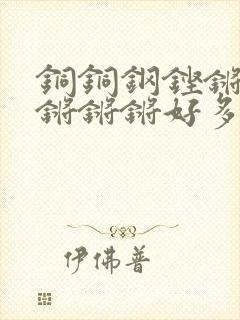 銅銅鋼鏗鏘
鏘鏘鏘好多
伊佛普